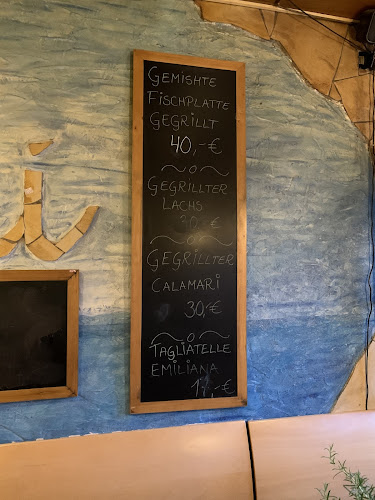 GEMISHTE
FISCHPLATTE
GEGRILLT
40,-€
GEGRILLTER
LACHS
30 €
GEGRILLTER
CALAMARI
30,-€
TAGLIATELLE
EMILIANA